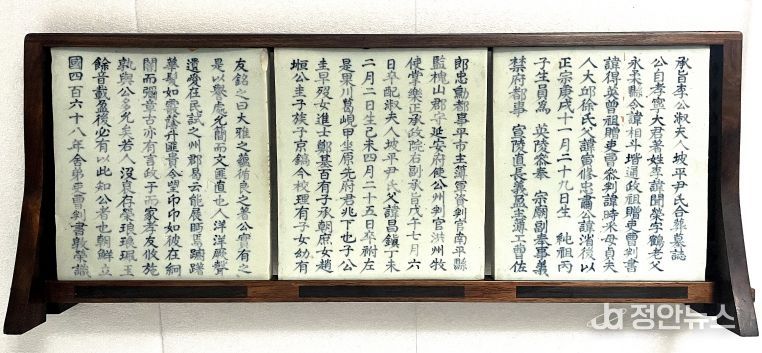 承旨李公淑夫人坡平尹氏合葬墓誌
公自孝寧大君著姓李諱閏榮字鶴老父
永柔縣令諱相斗階通政祖贈吏曹判書
諱得英曾祖贈吏曹參判諱時晦母貞夫
人大邱徐氏父諱當修忠肅公諱渻後以
正宗庚戌十一月二十九日生 純祖丙
子生員爲 英陵參奉 宗廟副奉事義
禁府都事 宣陵直長義盈主簿工曹佐
郎忠勳都事平市主簿軍資判官南平縣
監槐山郡守延安府使公州判官洪州牧
使掌樂正承政院右副承旨戊午七月六
日卒配淑夫人坡平尹氏父諱昌鎭丁未
二月二日生己未四月二十五日卒祔左
是果川葛峴甲坐原先府君兆下也子公
圭早歿女進士鄭基百有子承朝庶女趙
垣公圭子族子京鎬今校理有子女幼有
友銘之曰大雅之藹循良之著公實有之
是以譽處允簡而文匪直也人洋洋厥聲
遺愛在民試之州郡易云能展馬
華髮如雲蔭升匪貴令望卬卬如彼在絅
闇而彌章古亦有言政于而家孝友攸施
孰與公多允矣若人沒良存榮琅琅珮玉
餘音載盈後必有以此知公者也朝鮮立
國四百六十八年舍弟吏曹判書敦榮識
정안뉴스